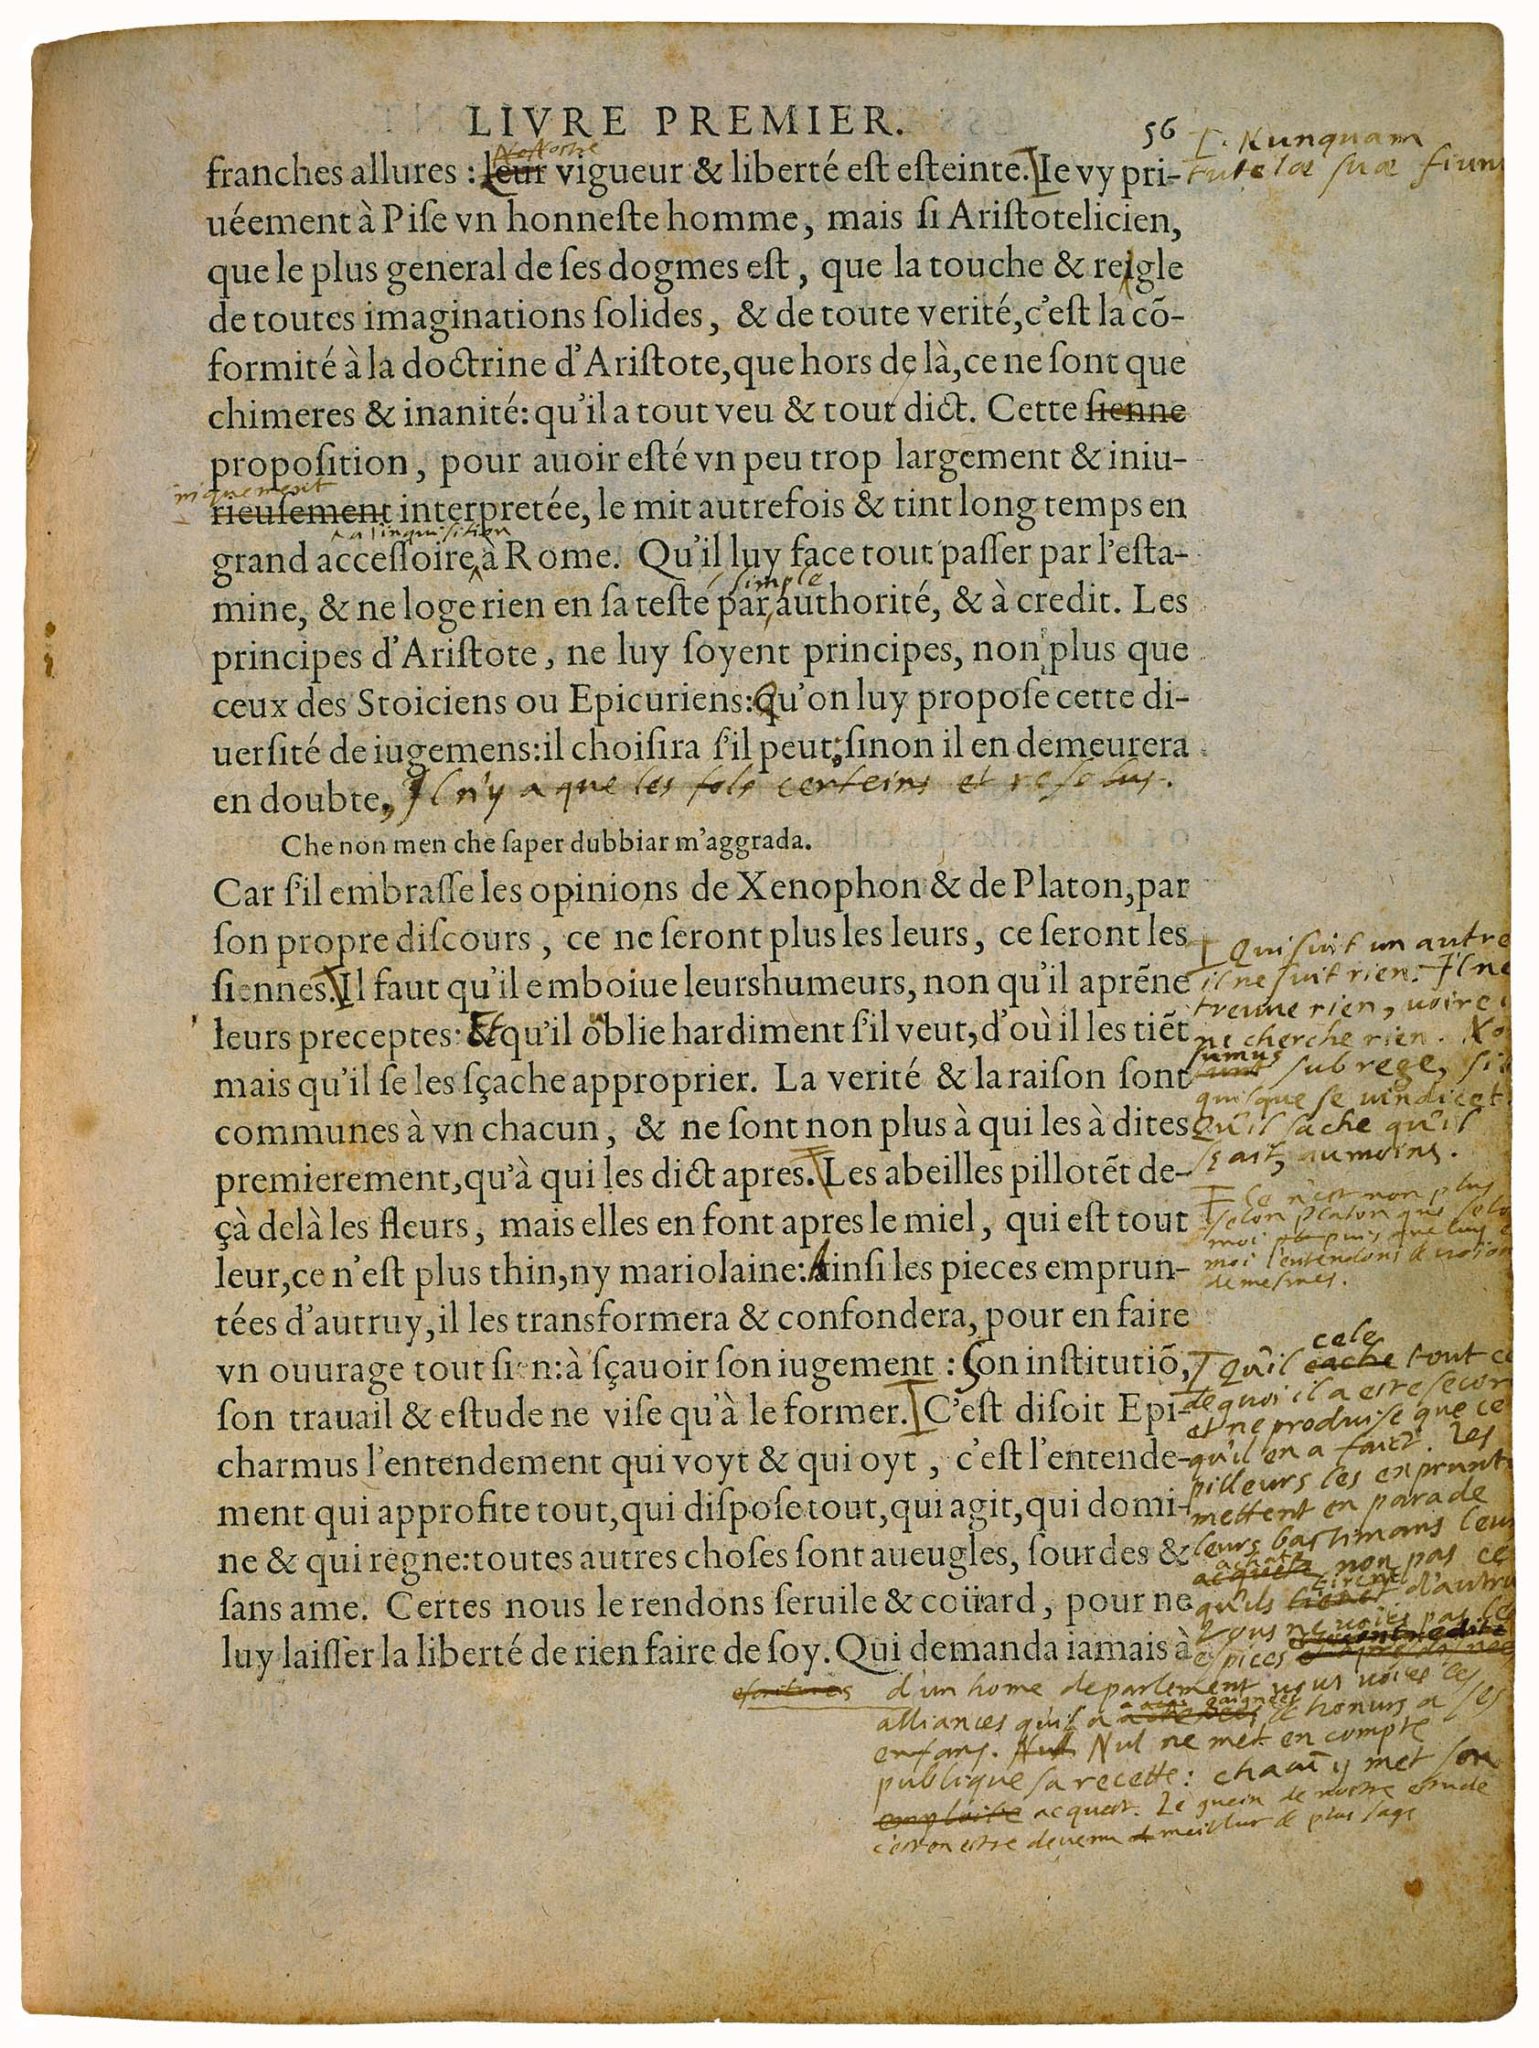 LIVRE PREMIER. 56
Nostre
franches allures : leur vigueur & liberté est esteinte. Ie vy pri-
uéement à Pise vn honneste homme, mais si Aristotelicien,
que le plus general de ses dogmes est, que la touche & reigle
de toutes imaginations solides, & de toute verité, c'est la cō-
formité à la doctrine d'Aristote, que hors de là, ce ne sont que
chimeres & inanité: qu'il a tout veu & tout dict. Cette sienne
proposition, pour auoir esté vn peu trop largement & iniu-
iniquement
rieusement interpretée, le mit autrefois & tint long temps en
a l'inquisition
grand accessoire à Rome. Qu'il luy face tout passer par l'esta-
simple
mine, & ne loge rien en sa teste par authorité, & à credit. Les
principes d'Aristote, ne luy soyent principes, non plus que
ceux des Stoiciens ou Epicuriens: Qu'on luy propose cette di-
uersité de iugemens: il choisira s'il peut, sinon il en demeurera
en doubte, Il n'y a que les fols certeins et resolus.
Che non men che saper dubbiar m'aggrada.
Car s'il embrasse les opinions de Xenophon & de Platon, par
son propre discours, ce ne seront plus les leurs, ce seront les
siennes. Il faut qu'il emboiue leurs humeurs, non qu'il aprēne
leurs preceptes: Et qu'il oblie hardiment s'il veut, d'où il les tiēt
mais qu'il se les sçache approprier. La verité & la raison sont
communes à vn chacun, & ne sont non plus à qui les à dites
premierement, qu'à qui les dict apres. Les abeilles pillotēt de-
çà delà les fleurs, mais elles en font apres le miel, qui est tout
leur, ce n'est plus thin, ny mariolaine: Ainsi les pieces emprun-
tées d'autruy, il les transformera & confondera, pour en faire
vn ouurage tout sien: à sçauoir son iugement : Son institutiō,
son trauail & estude ne vise qu'à le former. C'est disoit Epi-
charmus l'entendement qui voyt & qui oyt, c'est l'entende-
ment qui approfite tout, qui dispose tout, qui agit, qui domi-
ne & qui regne: toutes autres choses sont aueugles, sourdes &
sans ame. Certes nous le rendons seruile & coüard, pour ne
luy laisser la liberté de rien faire de soy. Qui demanda iamais à
Nunquam
tutelæ suæ fiunt
Qui suit un autre
il ne suit rien. Il ne
treuue rien, voire
ne cherche rien.
sumus
sunt sub rege, si
quisque se vindicet.
Qu'il sache qu'il
sçait, au moins.
Ce n'est non plus
selon platon que selo
moi puis que luy
moi l'entendons & voion
de mesmes.
cele
Qu'il cache tout ce
de quoi il a esté secor
et ne produise que ce
qu'il en a faict. Les
pilleurs les enprunt
mettent en parade
leurs bastimans leur
achats
acquets non pas ce
qu'ils tirent d'autru
Vous ne voies pas les
espices
d'un home de parlement vous voies les
alliances qu'il a gaignees & honurs a ses
enfans. Nul Nul ne met en compte
publique sa recette: chacun y met son
acquest. Le guein de nostre estude
c'est en estre devenu meillur & plus sage